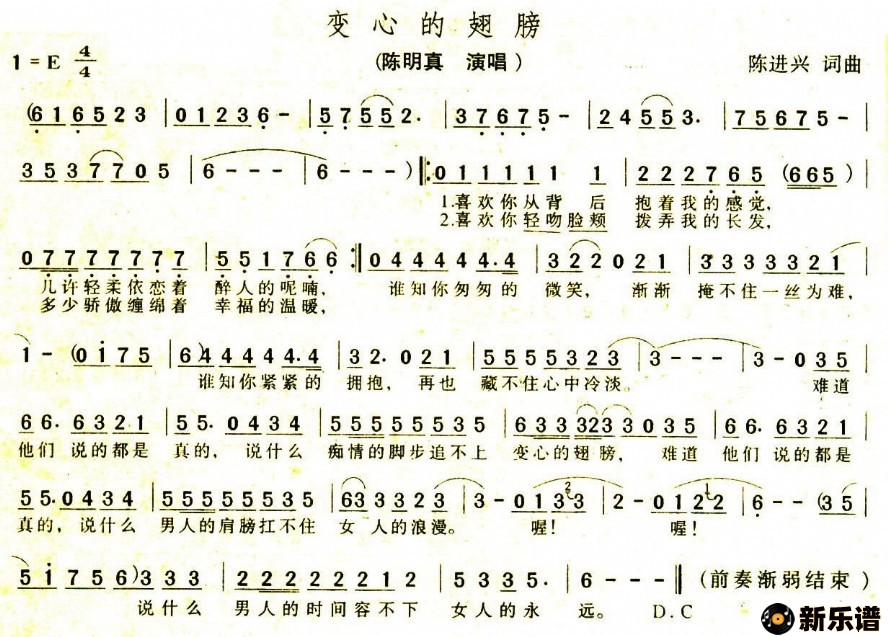 变心的翅膀
1=E 4/4 (陈明真 演唱) 陈进兴 词曲
(6 1 6 5 2 3 | 0 1 2 3 6 - | 5 7 5 5 2. | 3 7 6 7 5 - | 2 4 5 5 3. | 7 5 6 7 5 - |
3 5 3 7 7 0 5 | 6 - - - | 6 - - - ) ‖: 0 1 1 1 1 1 1 | 2 2 2 7 6 5 (6 6 5) |
1.喜欢你从背 后 抱着我的感觉,
2.喜欢你轻吻脸颊 拨弄我的长发,
0 7 7 7 7 7 7 7 | 5 5 1 7 6 6 :‖ 0 4 4 4 4 4 4. 4 | 3 2 2 0 2 1 | 3 3 3 3 3 2 1 |
几许轻柔依恋着 醉人的呢喃, 谁知你匆匆的 微笑, 渐渐 掩不住一丝为难,
多少骄傲缠绵着 幸福的温暖,
1 - (0 1 7 5 | 6) 4 4 4 4 4. 4 | 3 2. 0 2 1 | 5 5 5 5 3 2 3 | 3 - - - | 3 - 0 3 5 |
谁知你紧紧的 拥抱, 再也 藏不住心中冷淡。 难道
6 6. 6 3 2 1 | 5 5. 0 4 3 4 | 5 5 5 5 5 5 3 5 | 6 3 3 3 3 2 3 3 0 3 5 | 6 6. 6 3 2 1 |
他们 说的都是 真的, 说什么 痴情的脚步追不上 变心的翅膀, 难道 他们 说的都是
5 5. 0 4 3 4 | 5 5 5 5 5 5 3 5 | 6 3 3 3 2 3 | 3 - 0 1 3 3 | 2 - 0 1 2 2 | 6 - - (3 5 |
真的, 说什么 男人的肩膀扛不住 女 人的浪漫。 喔! 喔!
5 1 7 5 6) 3 3 3 | 2 2 2 2 2 2 1 2 | 5 3 3 5. | 6 - - - ‖ (前奏渐弱结束)
说什么 男人的时间容不下 女人的永 远。 D.C
新乐谱